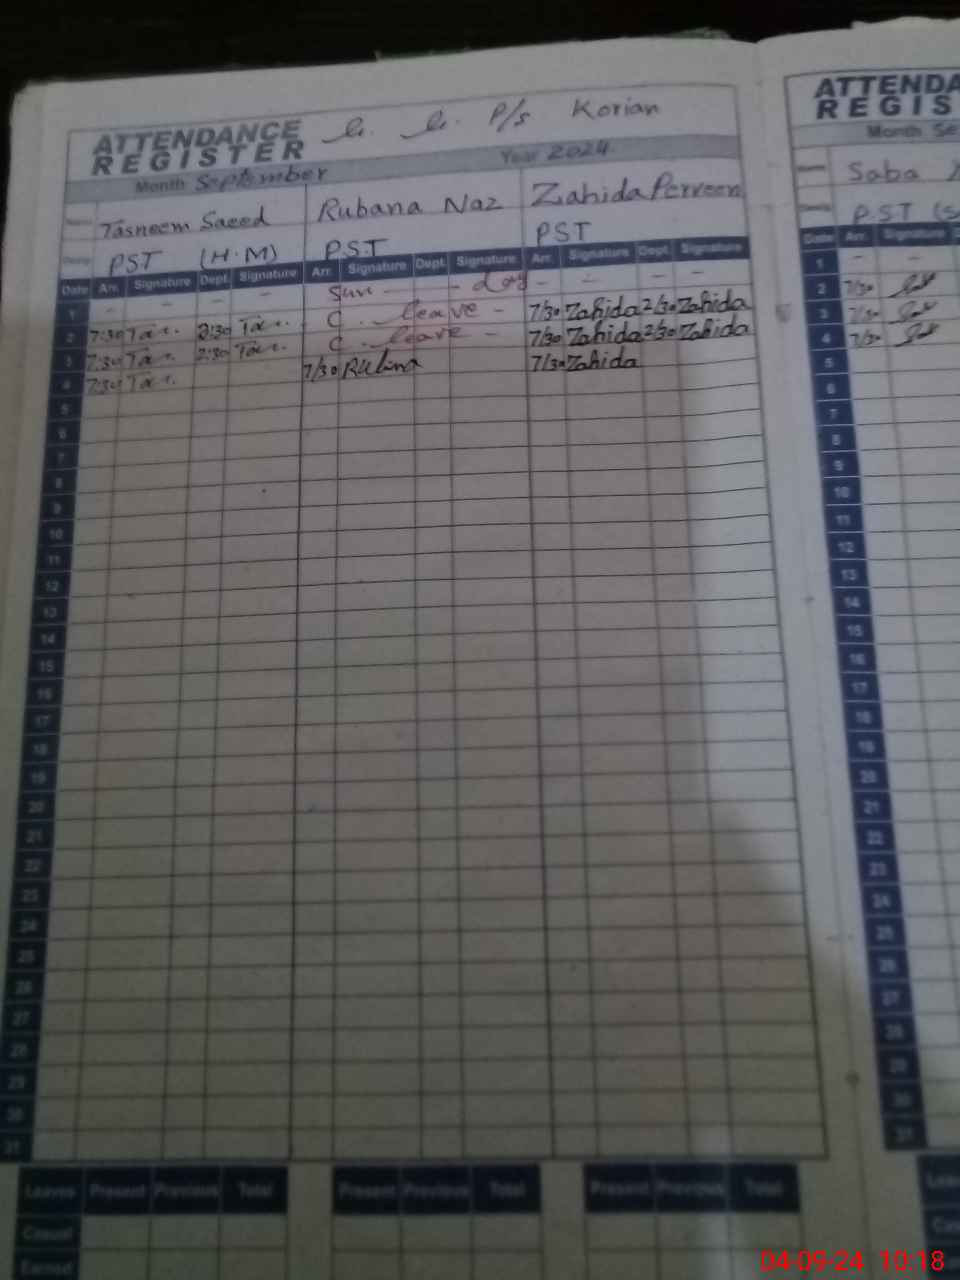 ATTENDANCE REGISTER P/s Korian
Month September Year 2024
Tasneem Saeed Rubana Naz Zahida Perveen
PST (H.M) P.S.T PST
Date Arr. Signature Dept. Signature Arr. Signature Dept. Signature Arr. Signature Dept. Signature
1 - - - Sun - - day - - - -
2 7:30 Tas. 2:30 Tas. C. leave - 7/30 Zahida 2/30 Zahida
3 7:30 Tas. 2:30 Tas. C. leave - 7/30 Zahida 2/30 Zahida
4 7:30 Tas. 7/30 Rubina 7/30 Zahida
5
6
7
8
9
10
11
12
13
14
15
16
17
18
19
20
21
22
23
24
25
26
27
28
29
30
31
Leaves Present Previous Total Present Previous Total Present Previous Total
Casual
Earned
ATTENDA
REGIS
Month Se
Saba
P.ST (S
Date Arr. Signature D
1 - -
2 7/30
3 7/30
4 7/30
5
6
7
8
9
10
11
12
13
14
15
16
17
18
19
20
21
22
23
24
25
26
27
28
29
30
31
Lea
Ca
04-09-24 10:18